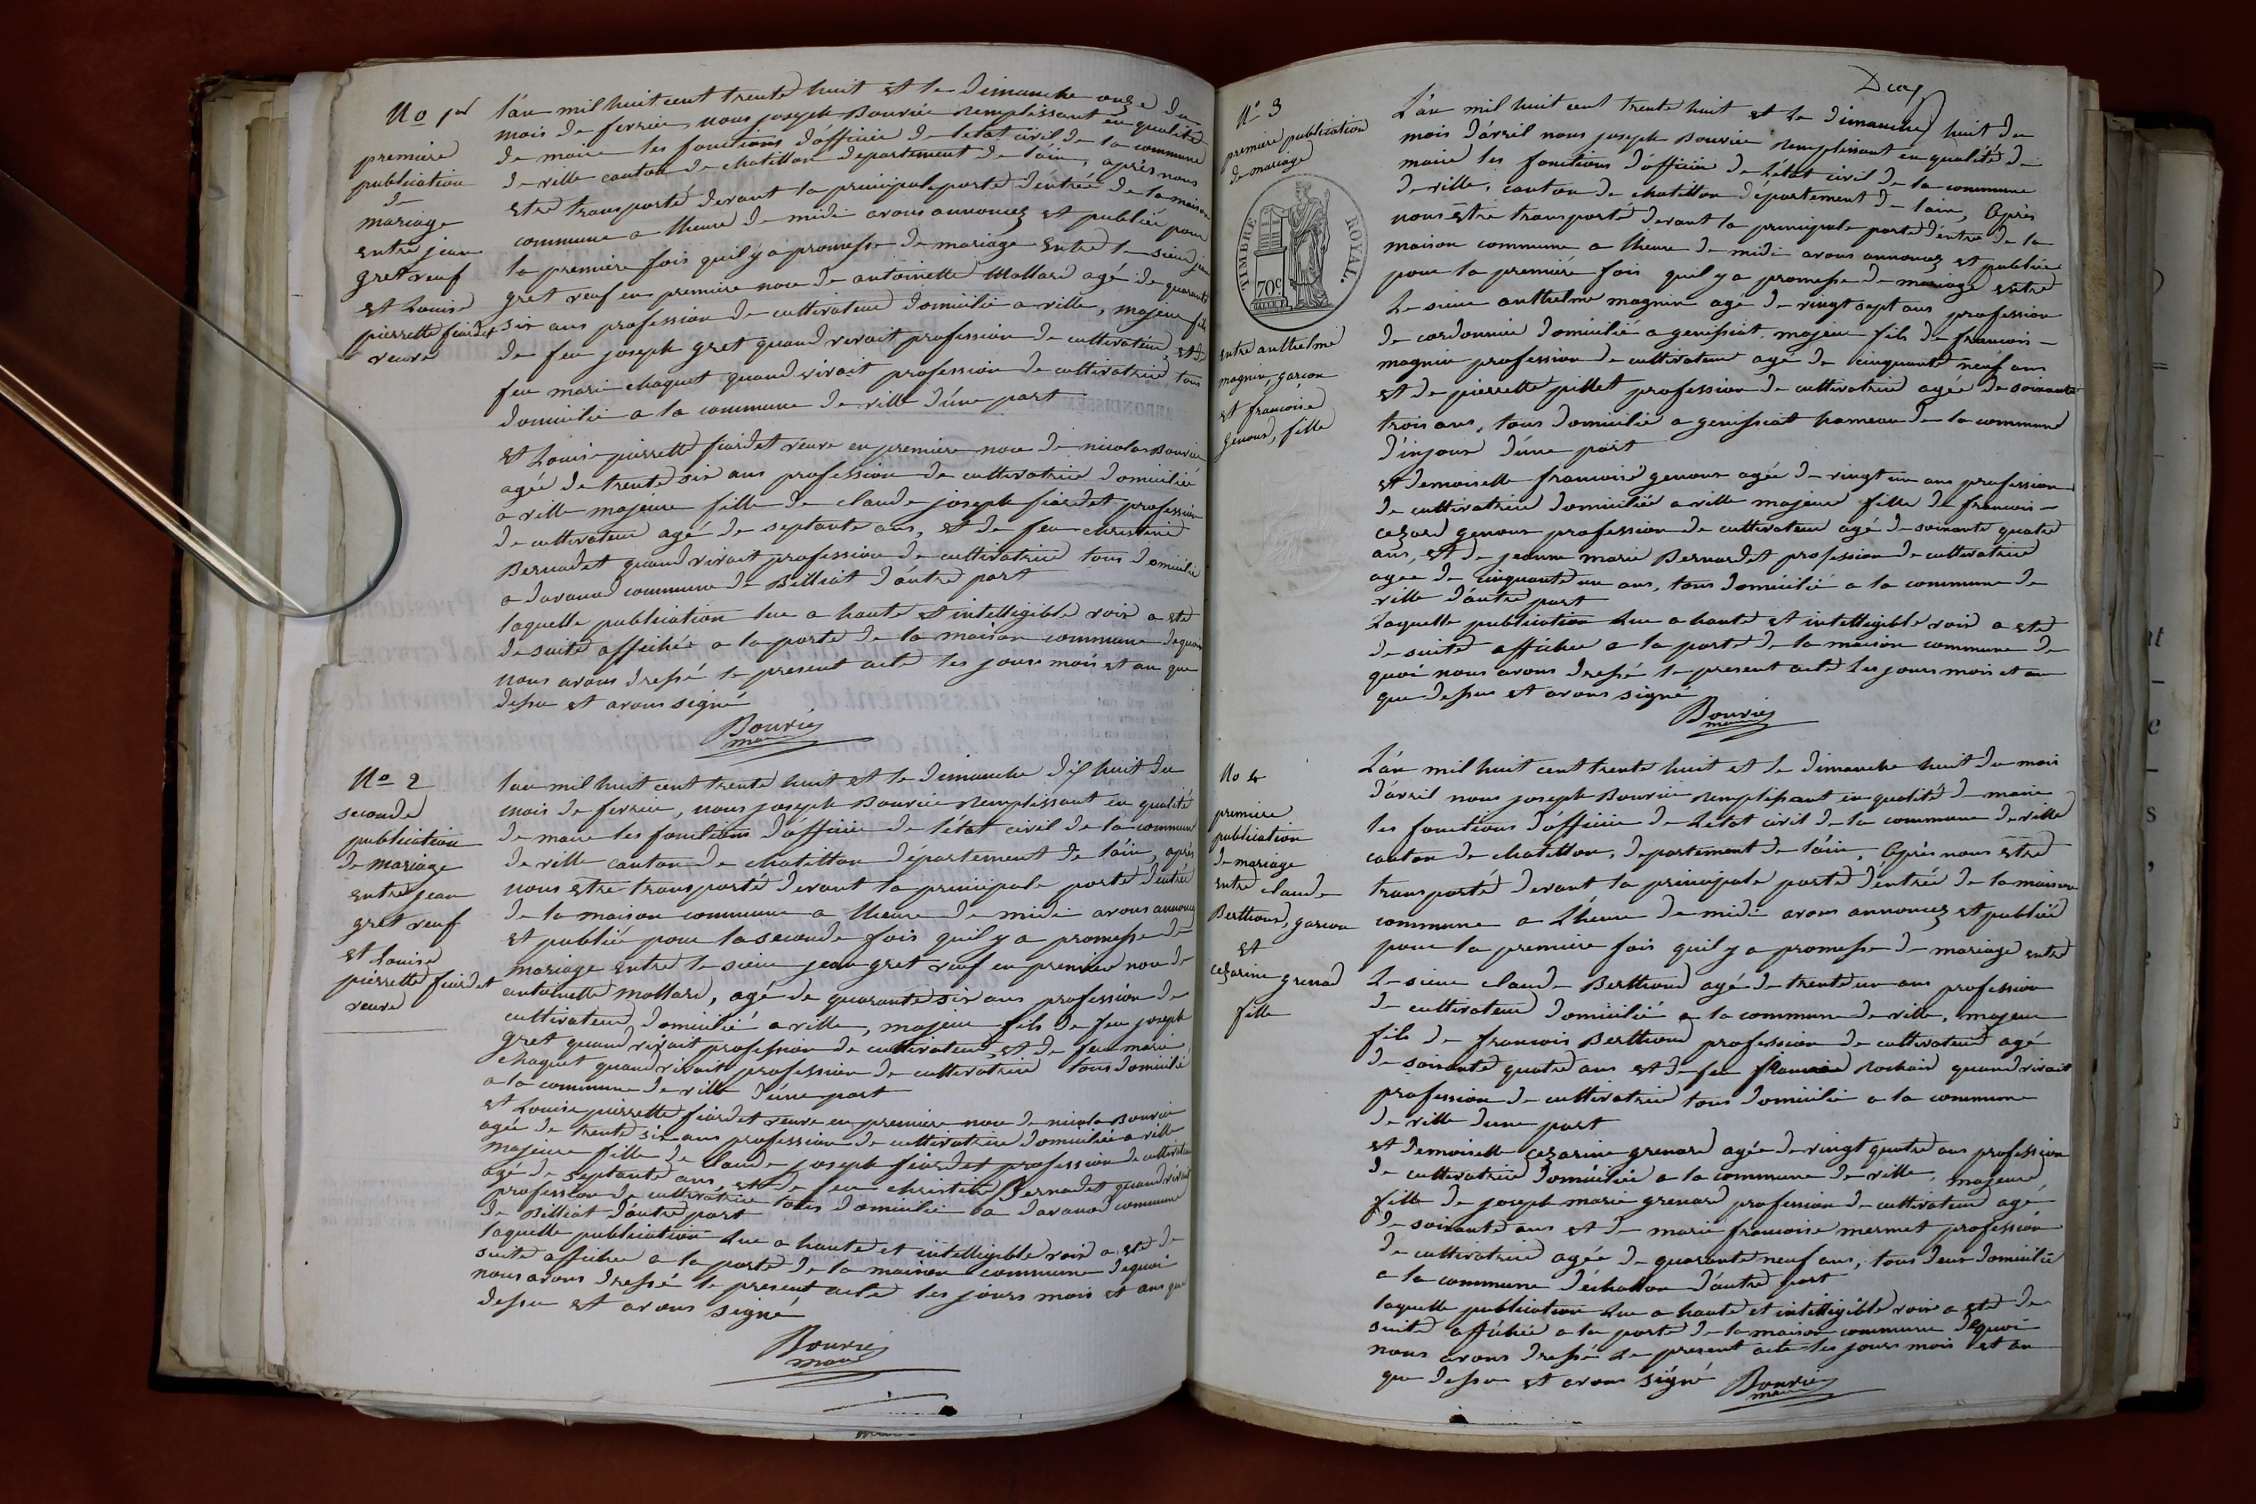 No 1er
premiere
publication
de
mariage
entre jean
gret veuf
et Louise
pierrette fiardet
veuve
l'an mil huit cent trente huit et le dimanche onze du
mois de fevrier, nous joseph Bouvier remplissant en qualité
de maire les fonctions d'officier de l'état civil de la commune
de ville canton de chatillon departement de l'ain, après nous
etre transporté devant la principale porte d'entrée de la maison
commune a lheure de midi avons annoncez et publiée pour
la premiere fois quil y a promesse de mariage entre le sieur jean
gret veuf en premiere noce de antoinette Mollard agé de quarante
six ans profession de cultivateur domicilié a ville, majeur fils
de feu joseph gret quand vivait profession de cultivateur, et de
feu marie chaquet quand vivait profession de cultivatrice, tous
domicilié a la commune de ville d'une part
et Louise pierrette fiardet veuve en premiere noce de nicolas Bouvier
agée de trente six ans profession de cultivatrice domiciliée
a ville majeure fille de claude joseph fiardet profession
de cultivateur agé de septante ans, et de feu christine
Bernadet quand vivait profession de cultivatrice tous domicilié
a davanod commune de Billiat d'autre part
laquelle publication lue a haute et intelligible voix a eté
de suite affichée a la porte de la maison commune dequoi
nous avons dressé le present acte les jours mois et an que
dessu et avons signé
Bouvier
maire
No 2
seconde
publication
de mariage
entre jean
gret veuf
et Louise
pierrette fiardet
veuve
l'an mil huit cent trente huit et le dimanche dix huit du
mois de fevrier, nous joseph Bouvier remplissant en qualité
de maire les fonctions d'officier de l'état civil de la commune
de ville canton de chatillon département de l'ain, après
nous etre transporté devant la principale porte d'entrée
de la maison commune a lheure de midi avons annoncez
et publiée pour la seconde fois quil y a promesse de
mariage entre le sieur jean gret veuf en premiere noce de
antoinette mollard, agé de quarante six ans profession de
cultivateur domicilié a ville, majeur fils de feu joseph
gret quand vivait profession de cultivateur, et de feu marie
chaquet quand vivait profession de cultivatrice tous domicilié
a la commune de ville d'une part
et Louise pierrette fiardet veuve en premiere noce de nicolas Bouvier
agée de trente six ans profession de cultivatrice domiciliée a ville
majeure fille de claude joseph fiardet profession de cultivateur
agé de septante ans, et de feu christine Bernadet quand vivait
profession de cultivatrice tous domicilié a davanod commune
de Billiat d'autre part
laquelle publication lue a haute et intelligible voix a eté de
suite affichée a la porte de la maison commune dequoi
nous avons dressé le present acte les jours mois et ans que
dessu et avons signé
Bouvier
maire
No 3
premiere publication
de mariage
TIMBRE ROYAL.
70c
entre anthelme
magnin, garçon
et francoise
genoud, fille
L'an mil huit cent trente huit et le dimanche huit du
mois d'avril nous joseph Bouvier remplissant en qualité de
maire les fonctions d'officier de l'état civil de la commune
de ville, canton de chatillon département de l'ain, Après
nous être transporté devant la principale porte d'entré de la
maison commune a lheure de midi avons annoncez et publiée
pour la premiere fois quil y a promesse de mariage entre
Le sieur anthelme magnin agé de vingt sept ans profession
de cordonnier domicilié a genissiat majeur fils de francois
magnin profession de cultivateur agé de cinquante neuf ans
et de pierrette pillet profession de cultivatrice agée de soixante
trois ans, tous domicilié a genissiat hameau de la commune
d'injoux d'une part
et demoiselle francoise genoux agée de vingt un ans profession
de cultivatrice domiciliée a ville majeure fille de francois
cezard genoux profession de cultivateur agé de soixante quatre
ans, et de jeanne marie Bernardet profession de cultivatrice
agée de cinquante un ans, tous domicilié a la commune de
ville d'autre part
Laquelle publication lue a haute et intelligible voix a eté
de suite affichée a la porte de la maison commune de
quoi nous avons dressé le present acte les jours mois et an
que dessus et avons signé
Bouvier
maire
No 4
premiere
publication
de mariage
entre claude
Berthoud, garcon
et
cezarine grenard
fille
L'an mil huit cent trente huit et le dimanche huit du mois
d'avril nous joseph Bouvier remplissant en qualité de maire
les fonctions d'officier de L'etat civil de la commune de ville
canton de chatillon, departement de l'ain, Après nous etre
transporté devant la principale porte d'entrée de la maison
commune a L'heure de midi avons annoncez et publiée
pour la premiere fois quil y a promesse de mariage entre
Le sieur claude Berthoud agé de trente un ans profession
de cultivateur domicilié a la commune de ville, majeur
fils de francois Berthoud profession de cultivateur agé
de soixante quatre ans et de feu quand vivait
profession de cultivatrice tous domicilié a la commune
de ville d'une part
et demoiselle cezarine grenard agée de vingt quatre ans profession
de cultivatrice domiciliée a la commune de ville, majeure
fille de joseph marie grenard profession de cultivateur agé
de soixante ans et de marie francoise mermet profession
de cultivatrice agée de quarante neuf ans, tous deux domicilié
a la commune d'échallon d'autre part
laquelle publication lue a haute et intelligible voix a eté de
suite affichée a la porte de la maison commune dequoi
nous avons dressé le present acte les jours mois et an
que dessu et avons signé
Bouvier
maire